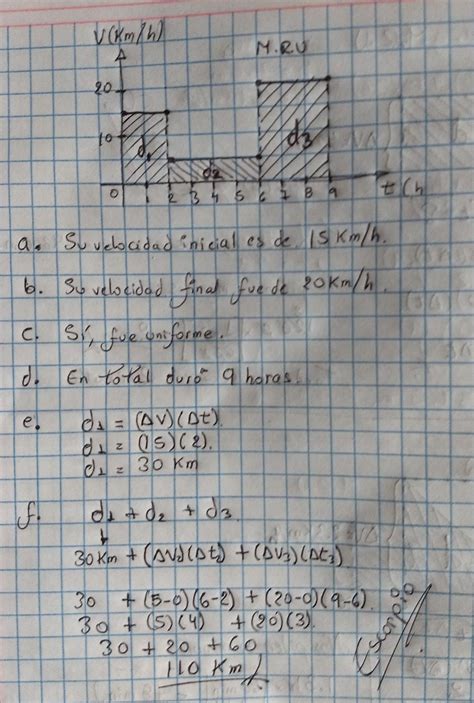 V(Km/h)
M.R.U
20
10
d1
d2
d3
0 1 2 3 4 5 6 7 8 9 t(h
a. Su velocidad inicial es de 15 Km/h.
b. Su velocidad final fue de 20 Km/h.
c. Sí, fue uniforme.
d. En total duró 9 horas.
e. d1 = (ΔV)(Δt).
d1 = (15)(2).
d1 = 30 Km
f. d1 + d2 + d3.
↓
30 Km + (ΔV2)(Δt2) + (ΔV3)(Δt3)
30 + (5-0)(6-2) + (20-0)(9-6).
30 + (5)(4) + (20)(3).
30 + 20 + 60
110 Km
Escorpio